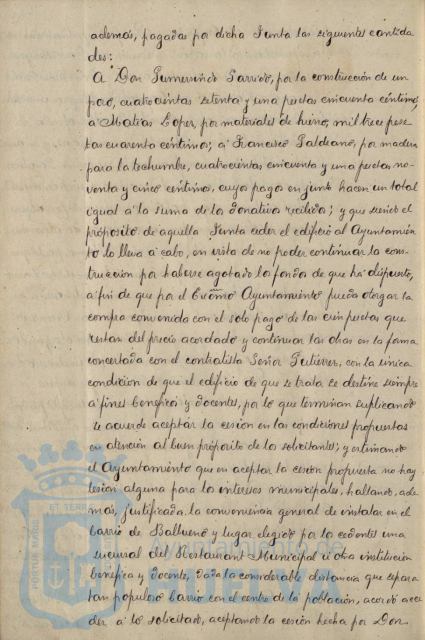 además, pagadas por dicha Junta las siguientes cantida
des:
A Don Gumersindo Garrido, por la construcción de un
pozo, cuatrocientas setenta y una pesetas cincuenta céntimos,
a Matías López, por materiales de hierro, mil trece pese
tas cuarenta céntimos; a Francisco Galdeano, por madera
para la techumbre, cuatrocientas cincuenta y una pesetas no-
venta y cinco céntimos, cuyos pagos en junto hacen un total
igual a la suma de los donativos recibidos; y que siendo el
propósito de aquella Junta ceder el edificio al Ayuntamien
to lo lleva a cabo, en vista de no poder continuar la cons-
trucción por haberse agotado los fondos de que ha dispuesto,
a fin de que por el Excmo Ayuntamiento pueda otorgar la
compra convenida con el solo pago de las cien pesetas que
restan del precio acordado y continuar las obras en la forma
concertada con el contratista Señor Gutierrez, con la única
condición de que el edificio de que se trata se destine siempre
a fines benéficos y docentes, por lo que terminan suplicando
se acuerde aceptar la cesión en las condiciones propuestas
en atención al buen propósito de los solicitantes; y estimando
el Ayuntamiento que en aceptar la cesión propuesta no hay
lesión alguna para los intereses municipales, hallando, ade
más, justificada la conveniencia general de instalar en el
barrio de Ballueno y lugar elegido por los cedentes una
sucursal del Restaurant Municipal ú otra institución
benéfica y docente, dada la considerable distancia que separa
tan populoso barrio con el centro de la población, acordó acce
der a lo solicitado, aceptando la cesión hecha por Don
ET TERRA
PORTUS MAGNUS